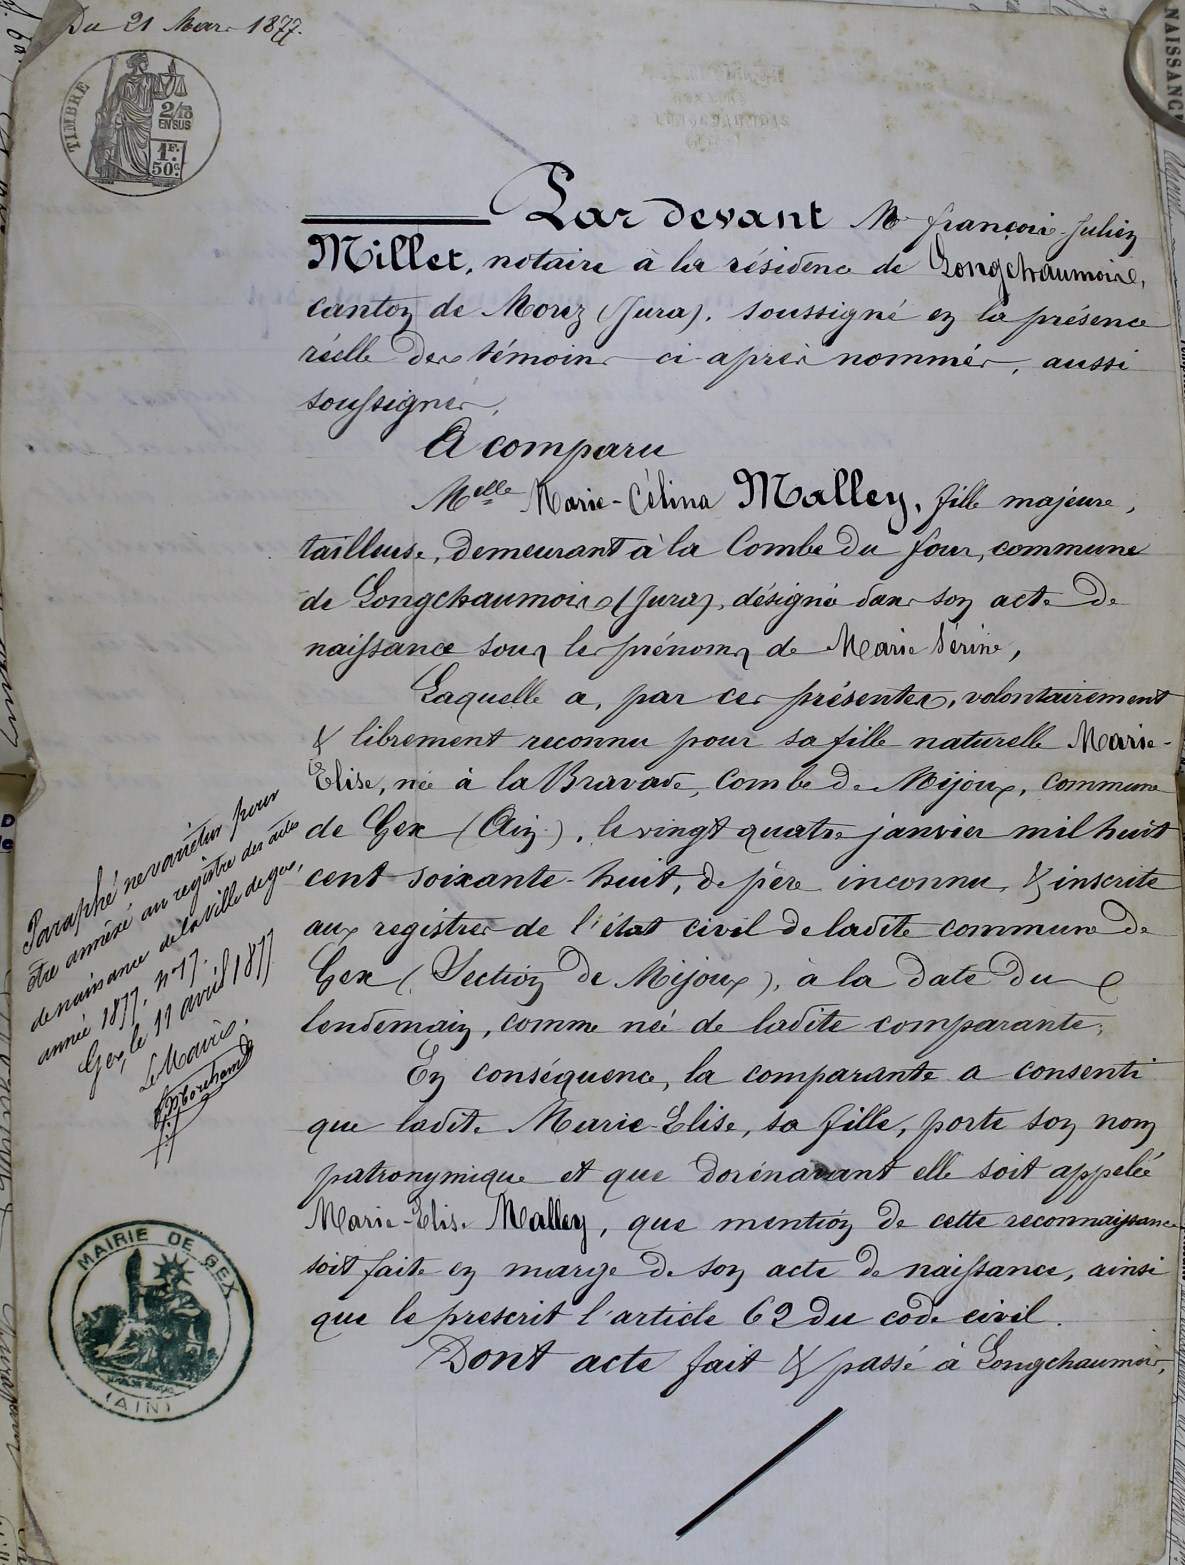 Du 21 Mars 1877.
TIMBRE
2/10
EN SUS
1F.
50c.
Par devant Me françois-Julien
Millet, notaire à la résidence de Longchaumois,
canton de Morez (Jura), soussigné en la présence
réelle des témoins ci-après nommés, aussi
soussignés,
A comparu
Melle Marie-Célina Malley, fille majeure,
tailleuse, demeurant à la Combe du four, commune
de Longchaumois (Jura), désignée dans son acte de
naissance sous les prénoms de Marie Sérine,
Laquelle a, par ces présentes, volontairement
& librement reconnu pour sa fille naturelle Marie-
Elise, née à la Bravade, Combe de Mijoux, commune
de Gex (Ain), le vingt quatre janvier mil huit
cent soixante-huit, de père inconnu, & inscrite
aux registres de l'état civil de ladite commune de
Gex (Section de Mijoux), à la date du
lendemain, comme née de ladite comparante.
En conséquence, la comparante a consenti
que ladite Marie-Elise, sa fille, porte son nom
patronymique et que dorénavant elle soit appelée
Marie-Elise Malley, que mention de cette reconnaissance
soit faite en marge de son acte de naissance, ainsi
que le prescrit l'article 62 du code civil.
Dont acte fait & passé à Longchaumois,
Paraphé ne varietur pour
être annéxé au registre des actes
de naissance de la ville de gex,
année 1877, No 17.
Gex, le 11 avril 1877
Le Maire.
MAIRIE DE GEX
(AIN)
NAISSANCE